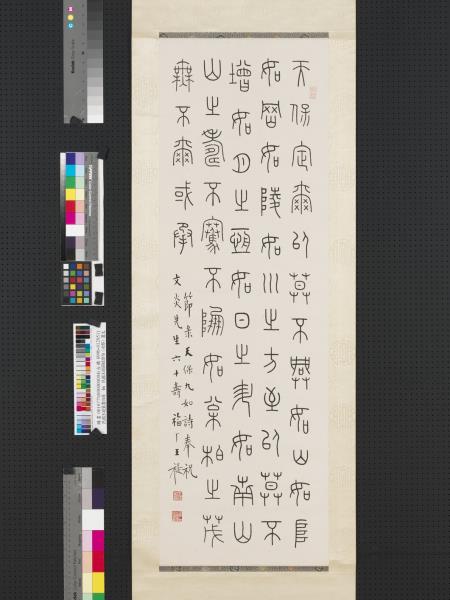 天保定爾以莫不興如山如阜
如岡如陵如川之方至以莫不
增如月之恆如日之升如南山
山之壽不騫不崩如松柏之茂
無不爾或承
節录天保九如詩奉祝
文炎先生六十壽 福厂王禔